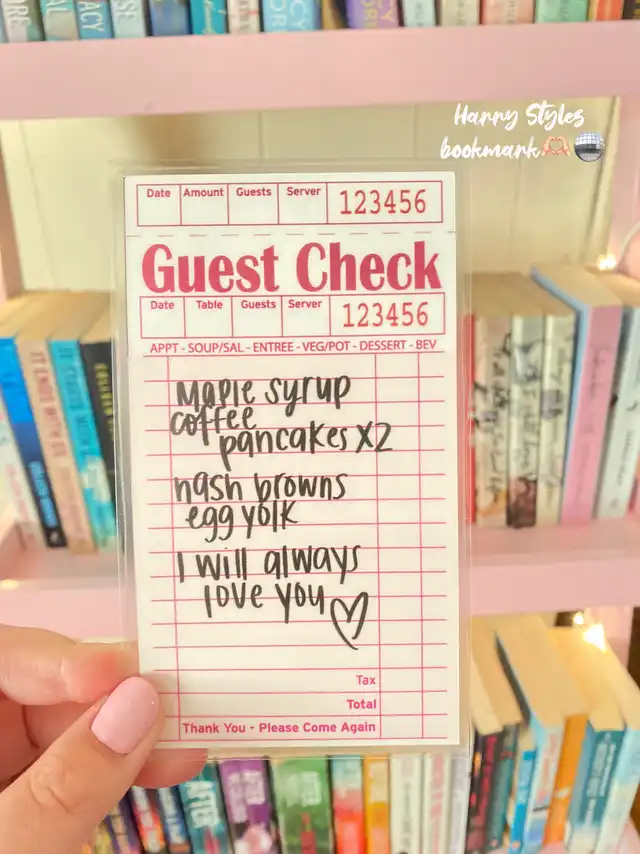 Harry Styles
bookmark🫶🏻🪩
Date Amount Guests Server 123456
Guest Check
Date Table Guests Server 123456
APPT - SOUP/SAL - ENTREE - VEG/POT - DESSERT - BEV
maple syrup
coffee
pancakes x2
hash browns
egg yolk
I will always
love you♡
Tax
Total
Thank You - Please Come Again
IT ENDS WITH US
AFTER
AFTER
AFTER